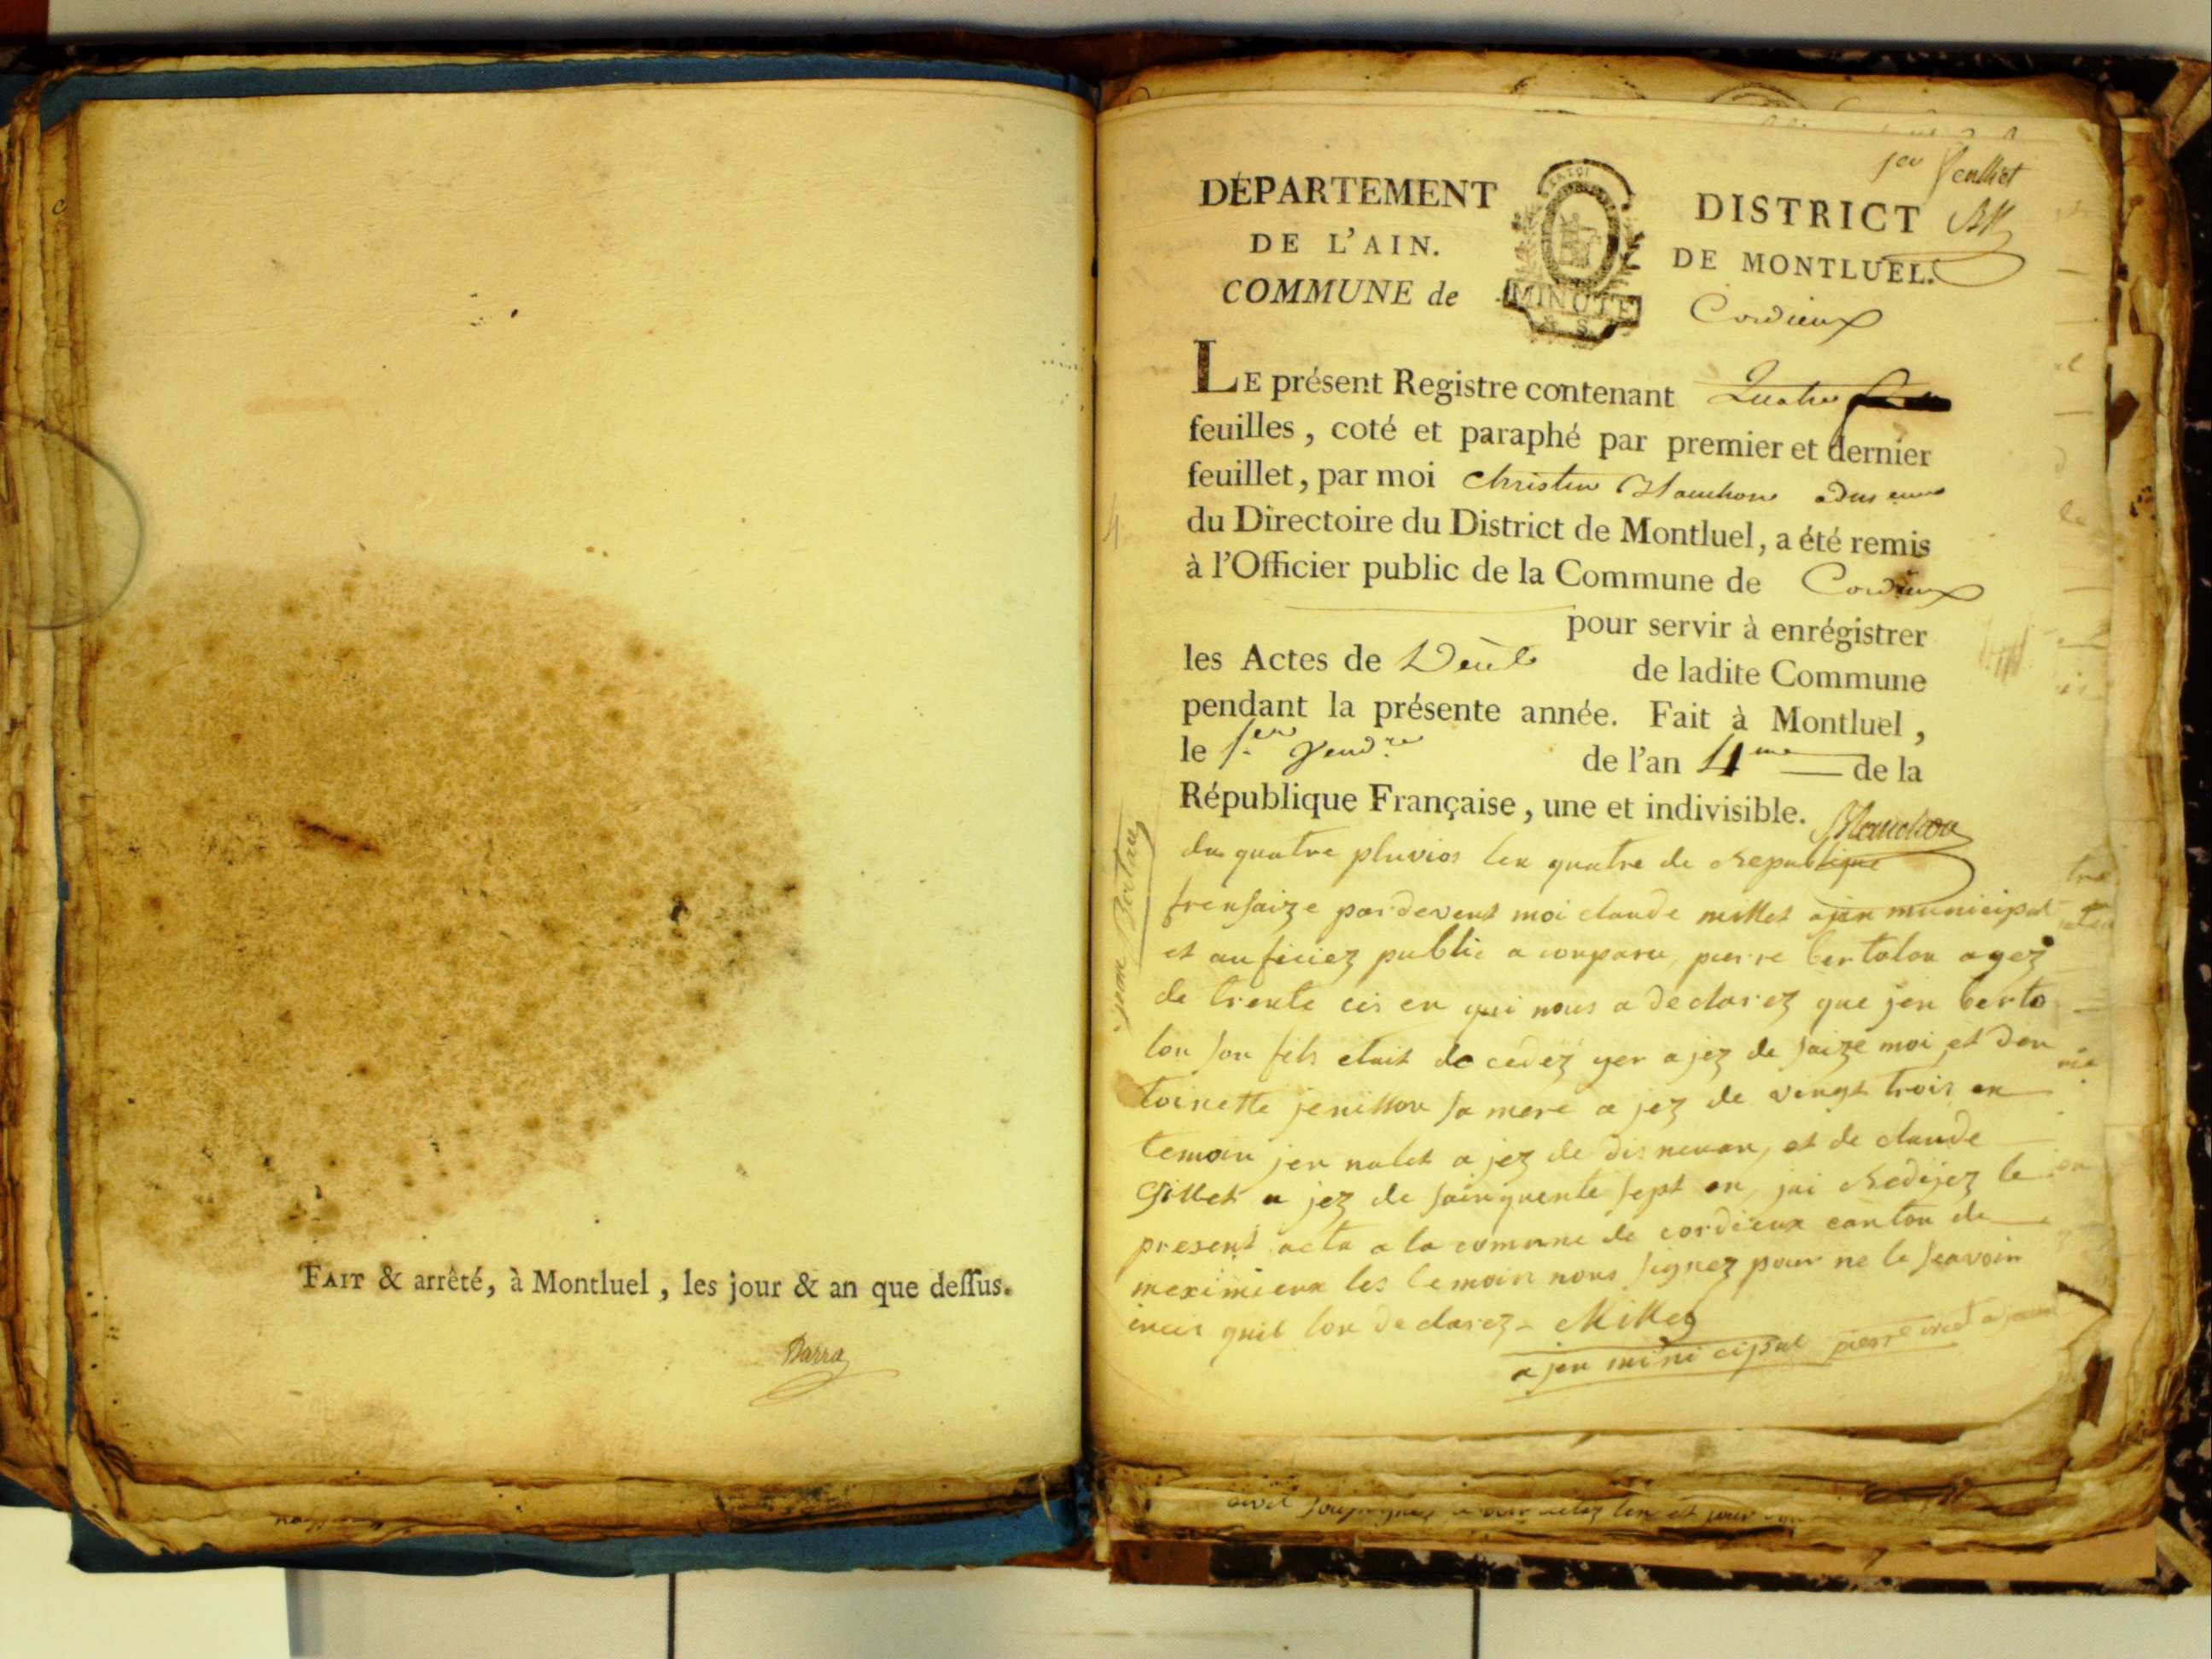 FAIT & arrêté, à Montluel, les jour & an que deſſus.
Barra
1er feuillet
DÉPARTEMENT
DE L'AIN.
COMMUNE de
MINUTE
DISTRICT
DE MONTLUEL.
Cordieux
LE présent Registre contenant Quatre
feuilles, coté et paraphé par premier et dernier
feuillet, par moi Christin Blanchon
du Directoire du District de Montluel, a été remis
à l'Officier public de la Commune de Cordieux
pour servir à enrégistrer
les Actes de Décès de ladite Commune
pendant la présente année. Fait à Montluel,
le 1.er Vend.re de l'an 4me de la
République Française, une et indivisible. Blanchon
du quatre pluvios len quatre de republique
frensaize pardevent moi claude millet ajen municipal
et auficiez public a conparu pierre bertolon agez
de trente cis en qui nous a declarez que jen berto
lon son fils etait decedez yer ajez de saize moi et den
toinette jenillon sa mere a jez de vingt trois en
temoin jen nalet a jez de dis neuan, et de claude
Gillet a jez de sainquente sept en jai redijez le
present acte a la comune de cordieux canton de
meximieux les temoin nons signez pour ne le seavoir
incis quil lon declarez - Millet
ajen minicipal pierre